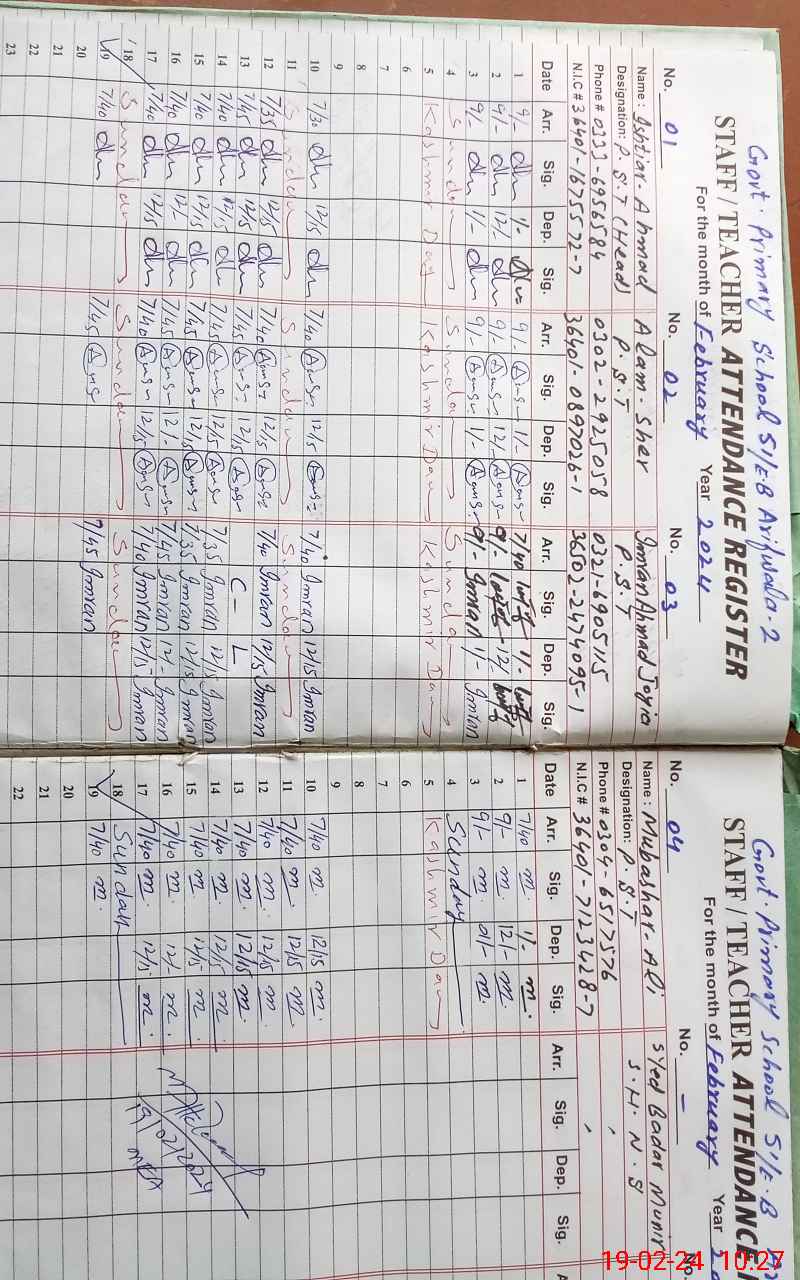 Govt. Primary School 51/E.B Arifwala-2
STAFF / TEACHER ATTENDANCE REGISTER
For the month of February Year 2024
No. 01 No. 02 No. 03
Name : Ishtiaq Ahmad Alam Sher Imran Ahmad Joyia
Designation: P.S.T (Head) P.S.T P.S.T
Phone # 0333-6956584 0302-2925058 0321-6905115
N.I.C # 36401-1675572-7 36401-0897026-1 36502-2474095-1
Date Arr. Sig. Dep. Sig. Arr. Sig. Dep. Sig. Arr. Sig. Dep. Sig.
1 9/- 1/- 9/- 1/- 7/40 1/-
2 9/- 12/- 9/- 12/- 9/- 12/-
3 9/- 1/- 9/- 1/- 9/- Imran 1/- Imran
4 Sunday Sunday Sunday
5 Kashmir Day Kashmir Day Kashmir Day
6
7
8
9
10 7/30 12/15 7/40 12/15 7/40 Imran 12/15 Imran
11 Sunday Sunday Sunday
12 7/35 12/15 7/40 12/15 7/40 Imran 12/15 Imran
13 7/45 12/15 7/45 12/15 C - L
14 7/40 12/15 7/45 12/15 7/35 Imran 12/15 Imran
15 7/40 12/15 7/45 12/15 7/35 Imran 12/15 Imran
16 7/40 12/- 7/45 12/- 7/45 Imran 12/- Imran
17 7/40 12/15 7/40 12/15 7/40 Imran 12/15 Imran
18 Sunday Sunday Sunday
19 7/40 7/45 7/45 Imran
20
21
22
23
Govt. Primary School 51/E.B
STAFF / TEACHER ATTENDANCE
For the month of February Year
No. 04 No. - No.
Name : Mubashar Ali Syed Badar Munir
Designation: P.S.T S.H.N.S
Phone # 0304-6517576
N.I.C # 36401-7123428-7
Date Arr. Sig. Dep. Sig. Arr. Sig. Dep. Sig.
1 7/40 m. 1/- m.
2 9/- m. 12/- m.
3 9/- m. m.
4 Sunday
5 Kashmir Day
6
7
8
9
10 7/40 m. 12/15 m.
11 7/40 m. 12/15 m.
12 7/40 m. 12/15 m.
13 7/40 m. 12/15 m.
14 7/40 m. 12/15 m.
15 7/40 m. 12/15 m.
16 7/40 m. 12/- m.
17 7/40 m. 12/15 m.
18 Sunday
19 7/40 m.
20
21
22
19/02/2024
MEA
19-02-24 10:27